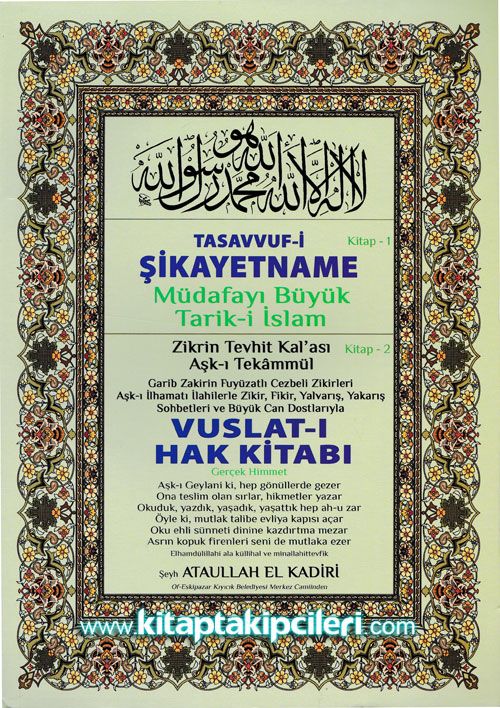 لا اله الا الله محمد رسول الله
TASAVVUF-İ Kitap - 1
ŞİKAYETNAME
Müdafayı Büyük
Tarik-i İslam
Zikrin Tevhit Kal'ası Kitap - 2
Aşk-ı Tekâmmül
Garib Zakirin Fuyüzatlı Cezbeli Zikirleri
Aşk-ı İlhamatı İlahilerle Zikir, Fikir, Yalvarış, Yakarış
Sohbetleri ve Büyük Can Dostlarıyla
VUSLAT-I
HAK KİTABI
Gerçek Himmet
Aşk-ı Geylani ki, hep gönüllerde gezer
Ona teslim olan sırlar, hikmetler yazar
Okuduk, yazdık, yaşadık, yaşattık hep ah-u zar
Öyle ki, mutlak talibe evliya kapısı açar
Oku ehli sünneti dinine kazdırtma mezar
Asrın kopuk firenleri seni de mutlaka ezer
Elhamdülillahi ala küllihal ve minallahittevfik
Şeyh ATAULLAH EL KADİRİ
Of-Eskipazar Kıyıcık Belediyesi Merkez Camiinden
www.kitaptakipcileri.com